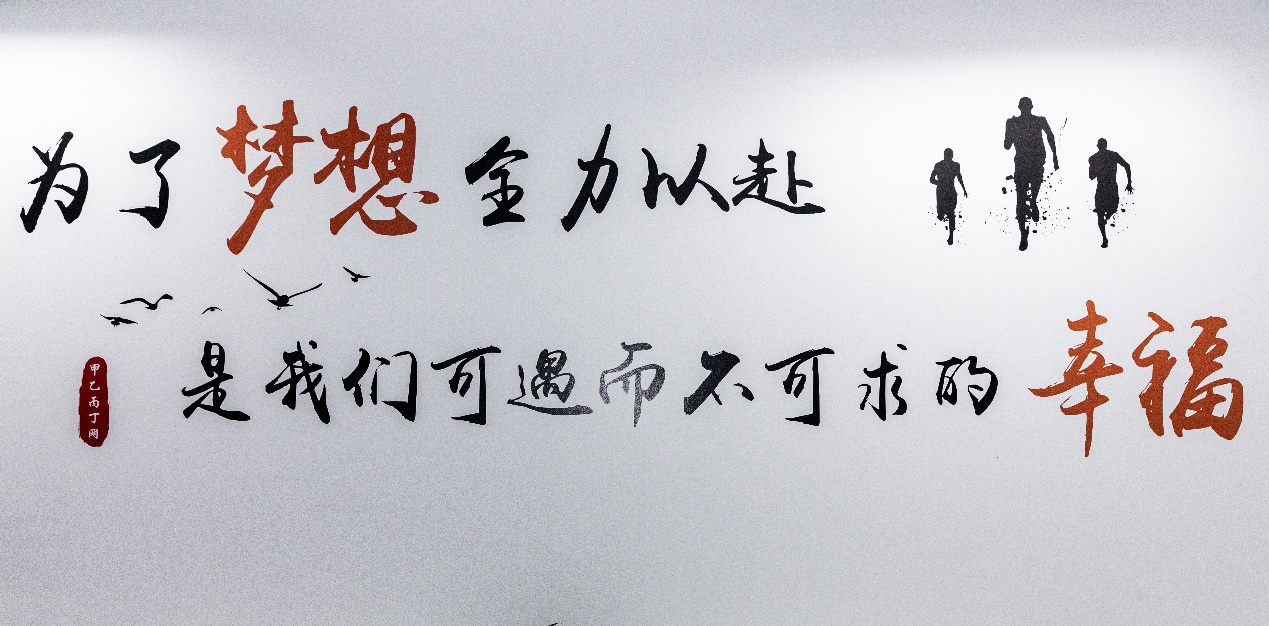 为了梦想全力以赴
是我们可遇而不可求的幸福
甲乙丙丁网